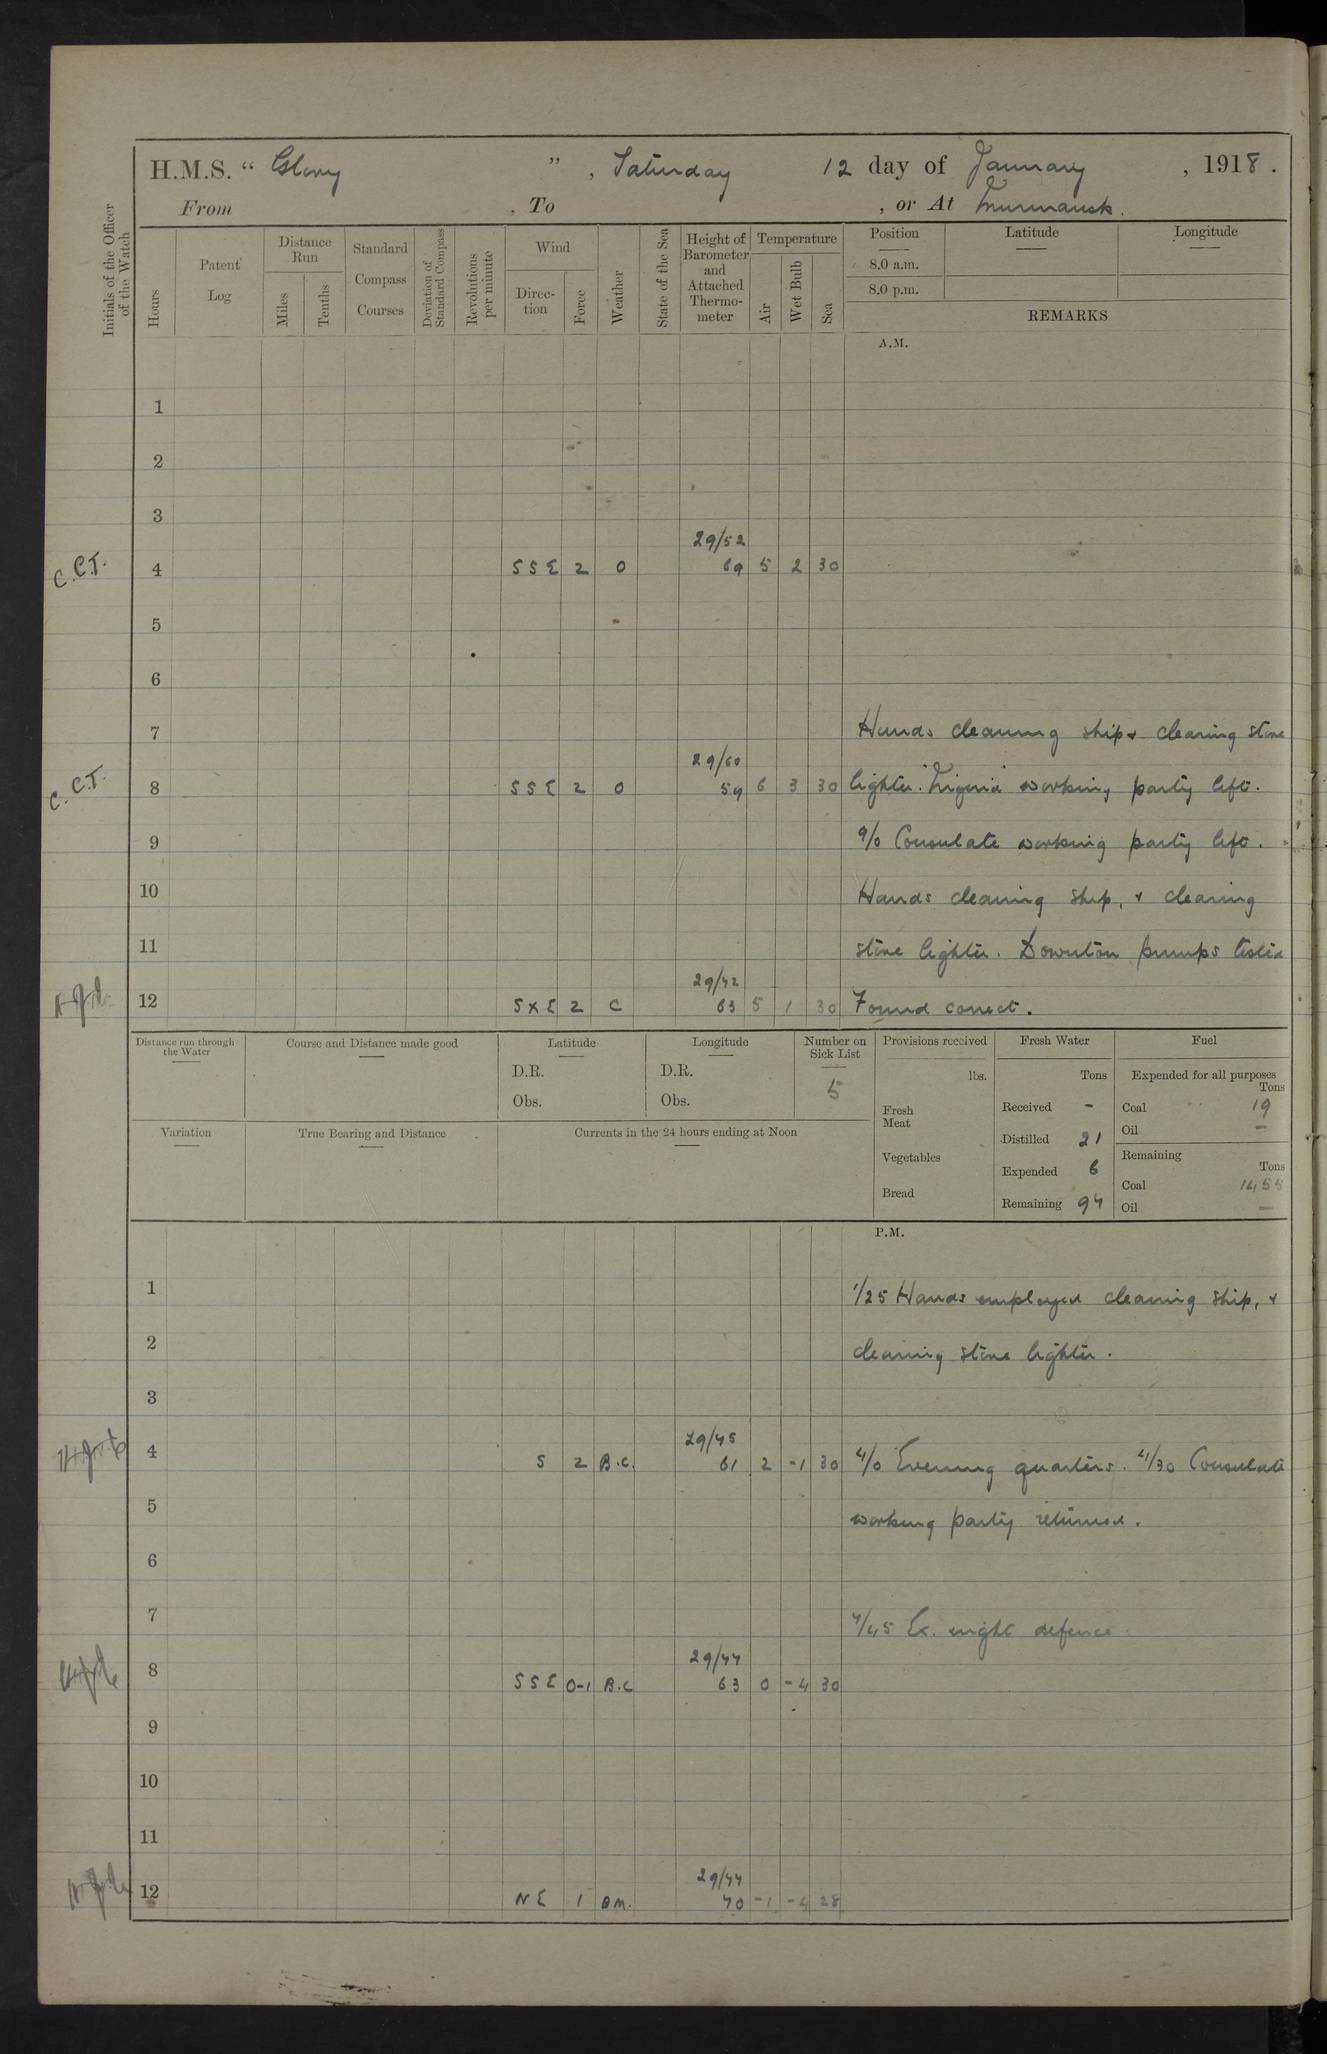 H.M.S. “ Glory ” , Saturday 12 day of January , 1918 .
From , To , or At Murmansk .
Initials of the Officer of the Watch
Hours
Patent Log
Distance Run
Miles
Tenths
Standard Compass Courses
Deviation of Standard Compass
Revolutions per minute
Wind
Direc- tion
Force
Weather
State of the Sea
Height of Barometer and Attached Thermo- meter
Temperature
Air
Wet Bulb
Sea
Position Latitude Longitude
8.0 a.m.
8.0 p.m.
REMARKS
A.M.
1
2
3
29/52
C.C.T. 4 SSE 2 O 69 5 2 30
5
6
7 Hands cleaning ship & clearing store
29/60
C.C.T. 8 SSE 2 O 59 6 3 30 lighter. working party left.
9 9/0 Consulate working party left.
10 Hands cleaning ship, & clearing
11 store lighter. Downton pumps tested
29/42
12 SXE 2 C 63 5 1 30 Found correct.
Distance run through the Water
Course and Distance made good
Latitude
D.R.
Obs.
Longitude
D.R.
Obs.
Number on Sick List
5
Provisions received
lbs.
Fresh Meat
Vegetables
Bread
Fresh Water
Tons
Received -
Distilled 21
Expended 6
Remaining 94
Fuel
Expended for all purposes
Tons
Coal 19
Oil –
Remaining
Tons
Coal 1455
Oil –
Variation
True Bearing and Distance
Currents in the 24 hours ending at Noon
P.M.
1 1/25 Hands employed cleaning ship, &
2 clearing store lighter.
3
29/45
4 S 2 B.C. 61 2 -1 30 4/0 Evening quarters. 4/30 Consulate
5 working party returned.
6
7 7/45 Ex. night defence
29/44
8 SSE 0-1 B.C 63 0 -4 30
9
10
11
29/44
12 NE 1 BM. 70 -1 -4 28